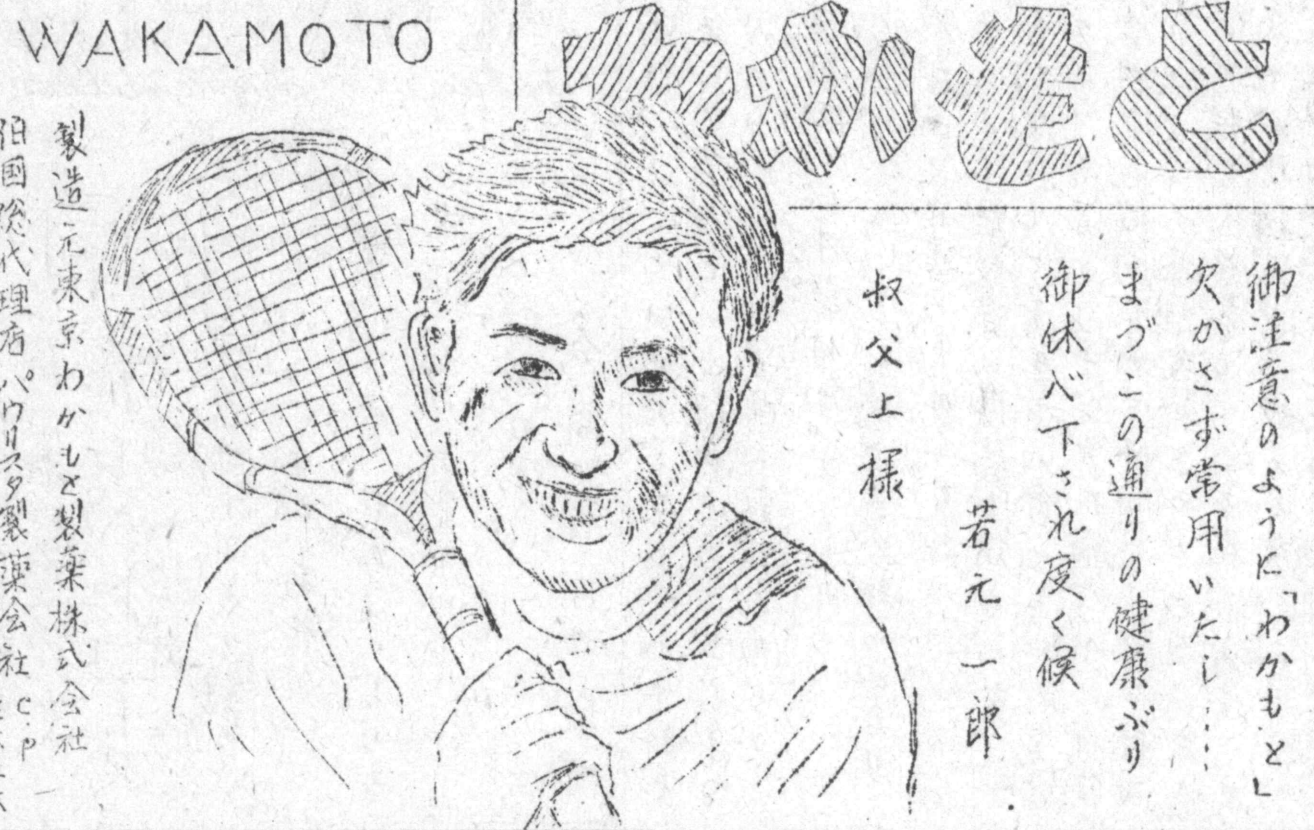 WAKAMOTO
わかもと
御注意のように「わかもと」
欠かさず常用いたし……
まづこの通りの健康ぶり
御休心下され度く候
若元一郎
叔父上様
製造元東京わかもと製薬株式会社
伯国総代理店パウリスタ製薬会社CP